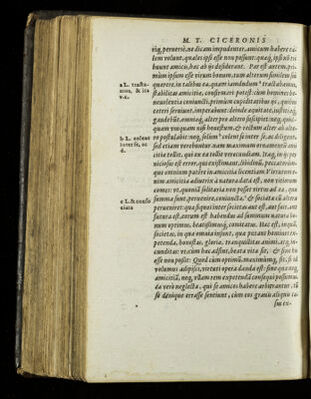 M. T. CICERONIS
riq; peruersè, ne dicam impudenter, amicum habere ta-
lem uolunt, quales ipsi esse non possunt: quæq; ipsi nō tri
buunt amicis, hæc ab ijs desiderant. Par est autem, pri-
mùm ipsum esse uirum bonum, tum alterum similem sui
quærere. in talibus ea, quam iamdudum tractabamus,
stabilitas amicitiæ, confirmari potest: cùm homines be-
neuolentia coniuncti, primùm cupiditatibus ijs, quibus
ceteri seruiunt, imperabunt: deinde æquitate, iustitiaq́;
gaudebūt, omniaq́; alter pro altero suscipiet: neq; quic-
quam unquam nisi honestum, & rectum alter ab alte-
ro postulabit: neq; solum colent inter se, ac diligent,
sed etiam uerebuntur. nam maximum ornamentū ami-
citiæ tollit, qui ex ea tollit uerecundiam. Itaq; in ijs per
niciosus est error, qui existimant, libidinū, peccatorūm-
que omnium patêre in amicitia licentiam. Virtutum e-
nim amicitia adiutrix à natura data est, non uitiorum
comes: ut, quoniā solitaria non posset uirtus ad ea, quæ
summa sunt, peruenire, coniuncta, & societa cū altera
perueniret: quæ si quos inter societas aut est, aut fuit, aut
futura est, eorum est habendus ad summum naturæ bo-
num optimus, beatissimusq́; comitatus. Hæc est, inquā,
societas, in qua omnia insunt, quæ putant homines ex-
petenda, honestas, gloria, tranquillitas animi, atq; iu-
cunditas: ut cùm hæc adsint, beata uita sit, & sine his
esse non possit. Quod cùm optimū, maximumq́; sit, si id
uolumus adipisci, uirtuti opera danda est: sine qua neq;
amicitiā, neq; ullam rem expetendā consequi possumus.
ea uerò neglecta, qui se amicos habere arbitrantur, tū
se deniq; errasse sentiunt, cùm eos grauis aliquis ca-
sus ex-
a L. tracta-
b L. colent
c L. & conso
ciata